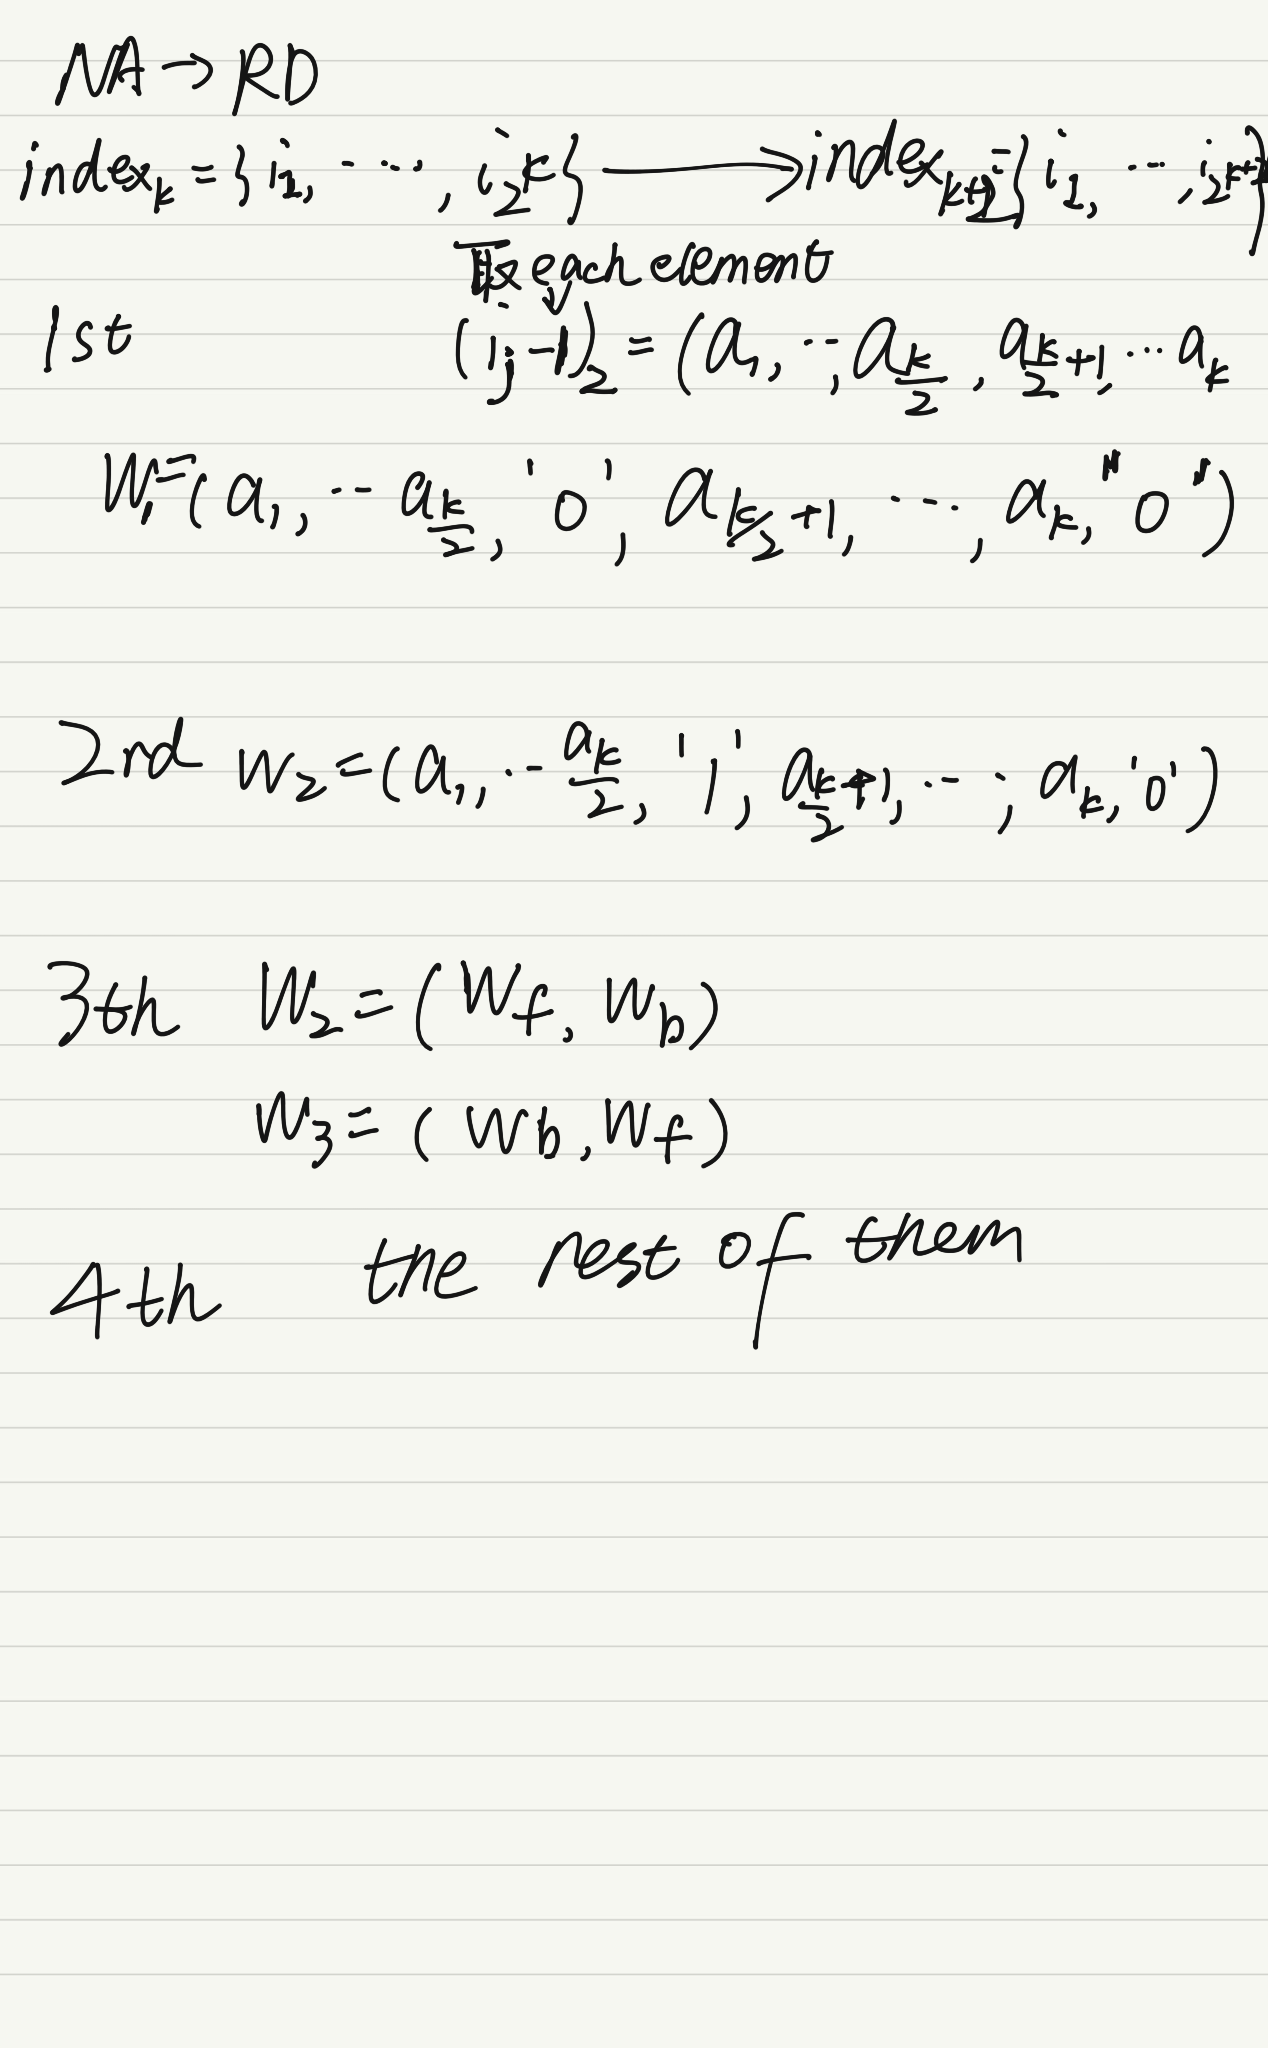 NA → RD
index_k = {i_1, ..., i_2^k} → index_{k+2} = {i_1, ..., i_2^{k+2}}
取 each element
1st (i_j-1)_2 = (a_1, ..., a_{k/2}, a_{k/2+1}, ... a_k
W_1 = (a_1, ... a_{k/2}, '0', a_{k/2+1}, ..., a_k, "0")
2rd W_2 = (a_1, ... a_{k/2}, '1', a_{k/2+1}, ..., a_k, '0')
3th W_2 = (W_f, W_b)
W_3 = (W_b, W_f)
4th the rest of them